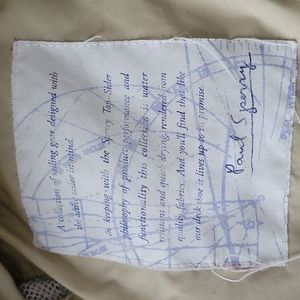 A collection of sailing gear designed with
the active sailor in mind.
in keeping with the Sperry Top-Sider
philosophy of product performance and
functionality this collection is water
resistant and quick drying rendered from
quality fabrics. And you'll find that like
our deck shoe it lives up to its promise.
Paul Sperry